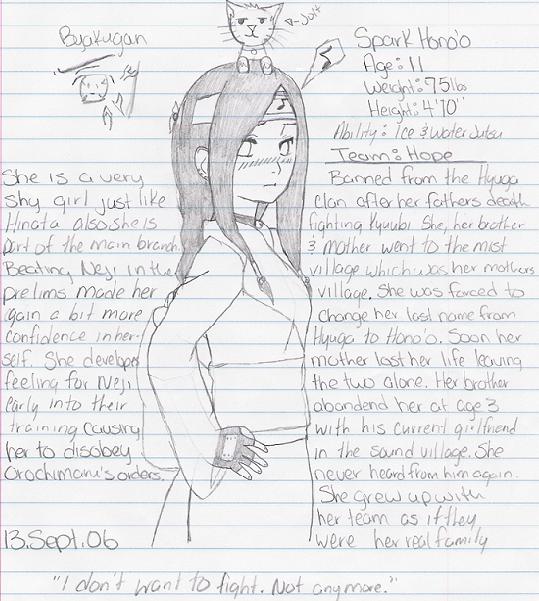 Byakugan
Spark Hono'o
Age: 11
Weight: 75lbs
Height: 4'10"
Ability: Ice & Water Jutsu
Team: Hope
She is a very
shy girl just like
Hinata also she is
part of the main branch.
Beating Neji in the
prelims made her
gain a bit more
confidence in her-
self. She develops
feeling for Neji
early into their
training causing
her to disobey
Orochimaru's orders.
Banned from the Hyuga
clan after her fathers death
fighting Kyuubi She, her brother
& mother went to the mist
village which was her mothers
village. She was forced to
change her last name from
Hyuga to Hono'o. Soon her
mother lost her life leaving
the two alone. Her brother
abandend her at age 3
with his current girlfriend
in the sound village. She
never heard from him again.
She grew up with
her team as if they
were her real family
13.Sept.06
"I don't want to fight. Not anymore."